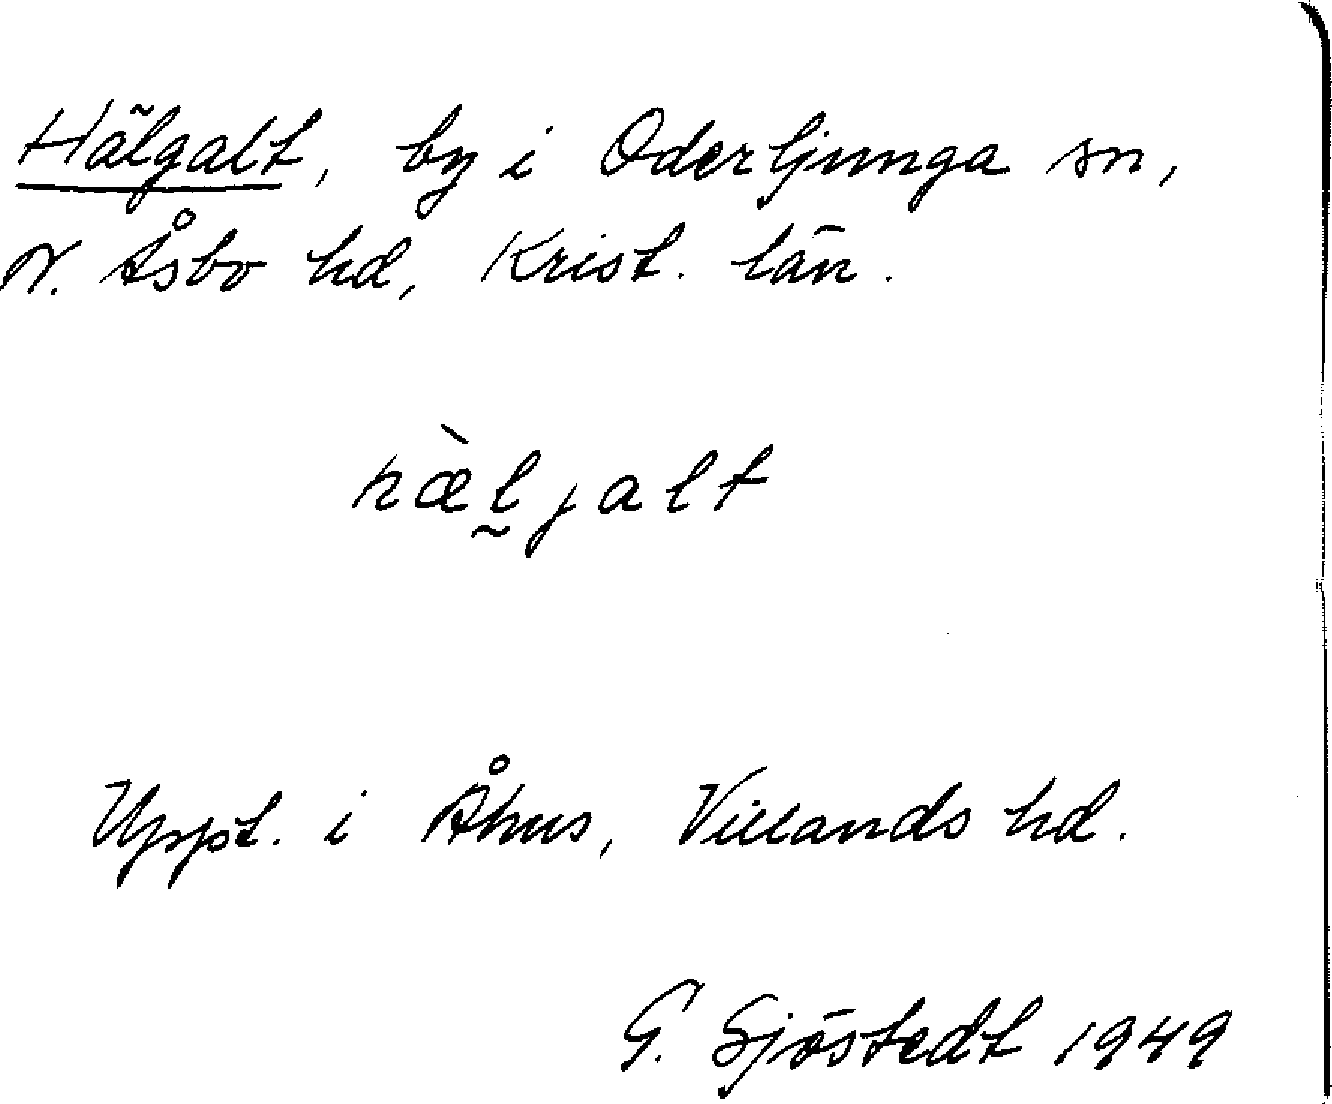 Hälgalt, by i Oderljunga sn,
N. Åsbo hd, Krist. län.
hæ̀l̰jalt
Uppt. i Åhus, Villands hd.
G. Sjöstedt 1949